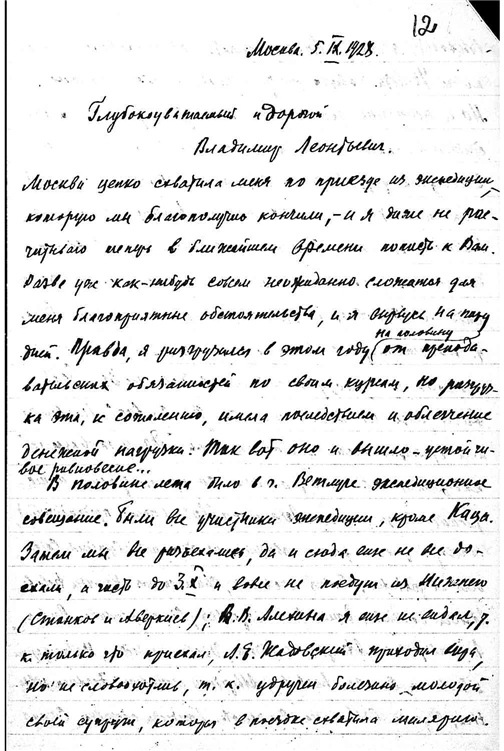 12
Москва. 5.IX.1928.
Глубокоуважаемый и дорогой
Владимир Леонтьевич.
Москва цепко схватила меня по приезде из экспедиции,
которую мы благополучно кончили, – и я даже не рас-
читываю теперь в ближайшем времени попасть к Вам.
Разве уж как-нибудь совсем неожиданно сложатся для
меня благоприятные обстоятельства, и я вырвусь на пару
дней. Правда, я разгрузился в этом году на половину от препода-
вательских обязанностей по своим курсам, но разгруз-
ка эта, к сожалению, имела последствием и облегчение
денежной нагрузки. Так вот оно и вышло – устойчи-
вое равновесие...
В половине лета было в г. Ветлуге экспедиционное
совещание. Были все участники экспедиции, кроме Каца.
Затем мы все разъехались, да и сюда еще не все до-
ехали, а часть до 3.X и вовсе не поедут из Нижнего
(Станков и Аверкиев); В.В. Алехина я еще не видал, т.
к. только что приехал, А.Е. Жадовский приходил сюда,
но не словоохотлив, т. к. удручен болезнью молодой
своей супруги, которая в поездке схватила малярию.